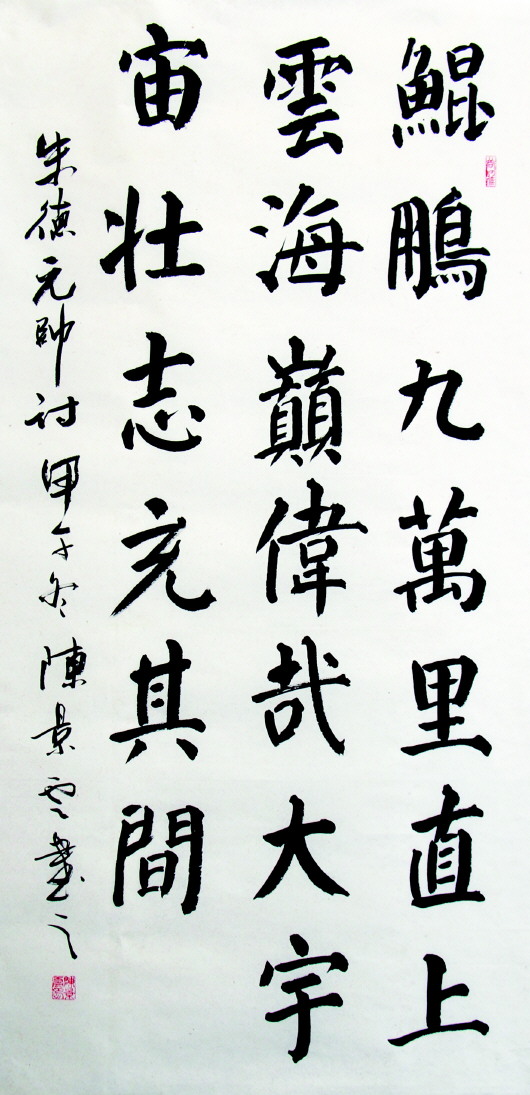 鯤鵬九萬里直上
雲海巔偉哉大宇
宙壯志充其間
朱德元帥討甲午冬陳景雲書之